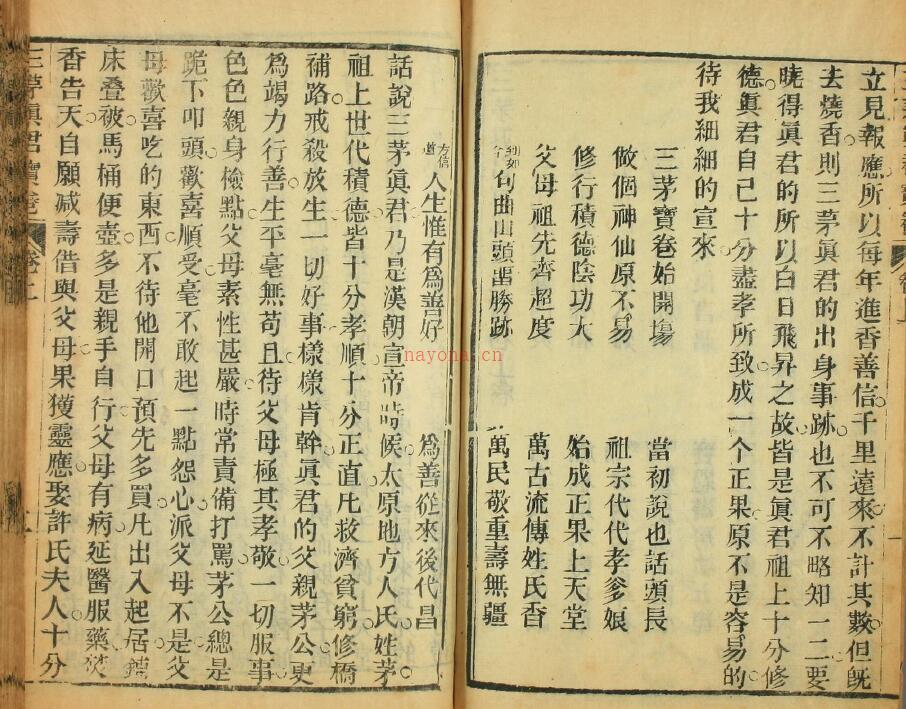 立見報應所以每年進香善信千里遠來不計其數但旣
去燒香則三茅眞君的出身事跡也不可不略知一二要
曉得眞君的所以白日飛昇之故皆是眞君祖上十分修
德眞君自己十分盡孝所致成一個正果原不是容易的
待我細細的宣來
三茅寶卷始開場 當初說也話頭長
做個神仙原不易 祖宗代代孝爹娘
修行積德陰功大 始成正果上天堂
父母祖先齊超度 萬古流傳姓氏香
到如今句曲山頭畱勝跡 萬民敬重壽無疆
方信道人生惟有爲善好 爲善從來後代昌
話說三茅眞君乃是漢朝宣帝時候太原地方人氏姓茅
祖上世代積德皆十分孝順十分正直凡救濟貧窮修橋
補路戒殺放生一切好事樣樣肯幹眞君的父親茅公更
爲竭力行善生平毫無苟且待父母極其孝敬一切服事
色色親身檢點父母素性甚嚴時常責備打罵茅公總是
跪下叩頭歡喜順受毫不敢起一點怨心派父母不是父
母歡喜吃的東西不待他開口預先多買凡出入起居鋪
床叠被馬桶便壺多是親手自行父母有病延醫服藥焚
香告天自願减壽借與父母果獲靈應娶許氏夫人十分
三茅眞君寶卷 卷上
nayona.cn